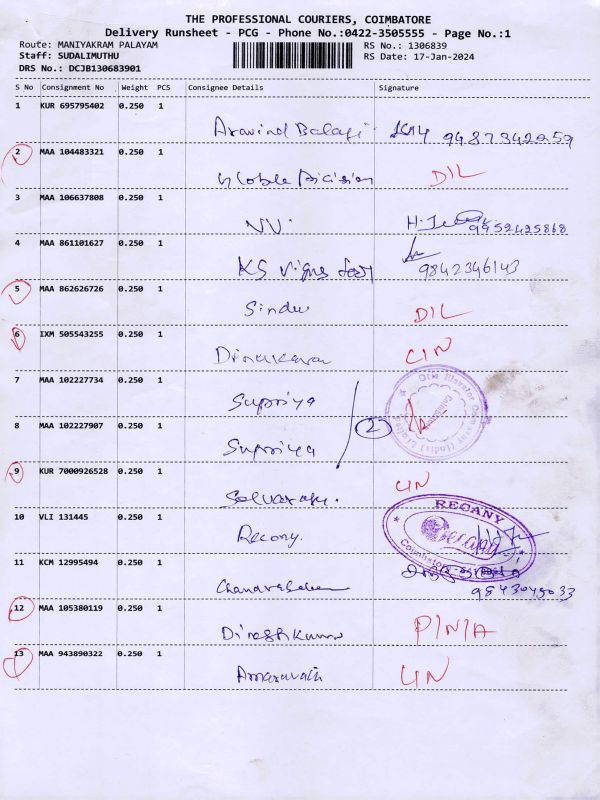 THE PROFESSIONAL COURIERS, COIMBATORE
Delivery Runsheet - PCG - Phone No.:0422-3505555 - Page No.:1
Route: MANIYAKRAM PALAYAM RS No.: 1306839
Staff: SUDALIMUTHU RS Date: 17-Jan-2024
DRS No.: DCJB130683901
S No Consignment No Weight PCS Consignee Details Signature
1 KUR 695795402 0.250 1
Aravind Balaji 9487342959
2 MAA 104483321 0.250 1
DIL
3 MAA 106637808 0.250 1
NV. 9952425868
4 MAA 861101627 0.250 1
KS 9842346143
5 MAA 862626726 0.250 1
Sindu DIL
6 IXM 505543255 0.250 1
Dinakaran CIN
7 MAA 102227734 0.250 1
Supriya
8 MAA 102227907 0.250 1
Supriya 2
9 KUR 7000926528 0.250 1
Selvaraju. CIN
10 VLI 131445 0.250 1
Recony. RECANY
11 KCM 12995494 0.250 1
Coimbatore
Chandrasekar
12 MAA 105380119 0.250 1
Dineshkumar P/N/A
13 MAA 943890322 0.250 1
Amaravathi CIN